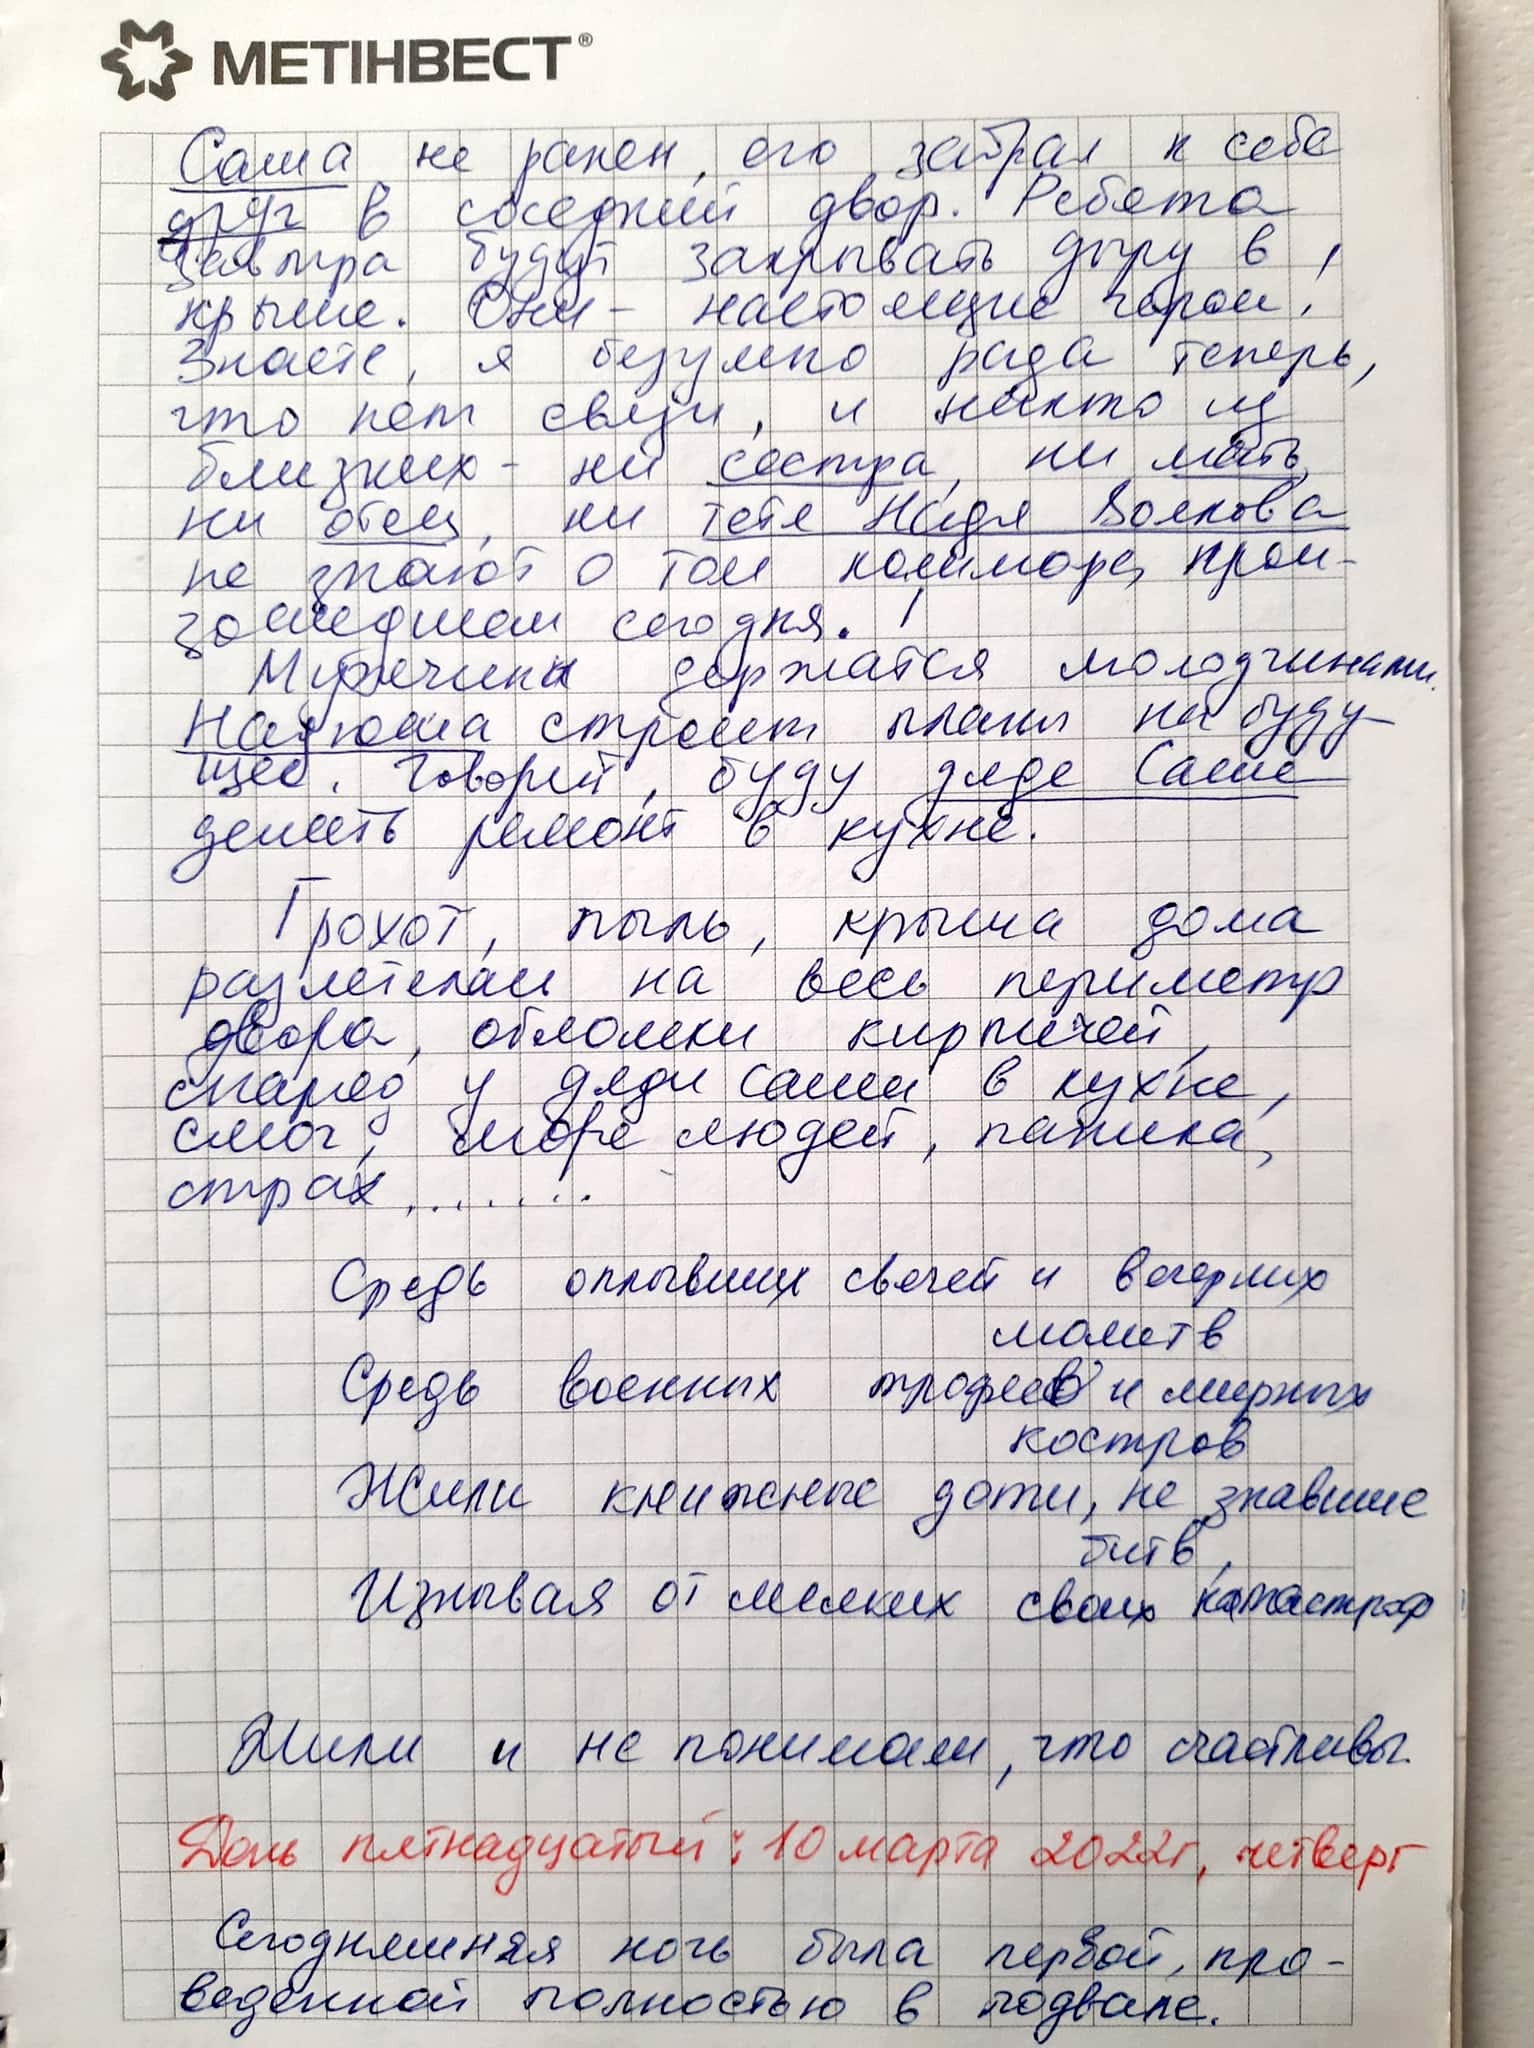 МЕТІНВЕСТ®
Саша не ранен, его забрал к себе
друг в соседний двор. Ребята
завтра будут закрывать дыру в
крыше. Они - настоящие герои!
Знаете, я безумно рада теперь,
что нет связи, и никто из
близких - ни сестра, ни мать,
ни отец, ни тетя Надя Волкова
не знают о том кошмаре, прои-
зошедшем сегодня.!
Мужчины держатся молодчинами.
Надюша строит планы на буду-
щее. Говорит, буду дяде Саше
делать ремонт в кухне.
Грохот, пыль, крыша дома
разлетелась на весь периметр
двора, обломки кирпичей,
снаряд у дяди Саши в кухне,
смог, море людей, паника,
страх, .......
Средь оплывших свечей и вечерних
молитв
Средь военных трофеев и мирных
костров
Жили книжные дети, не знавшие
битв,
Изнывая от мелких своих катастроф
Жили и не понимали, что счастливы.
День пятнадцатый: 10 марта 2022г, четверг
Сегодняшняя ночь была первой, про-
веденной полностью в подвале.